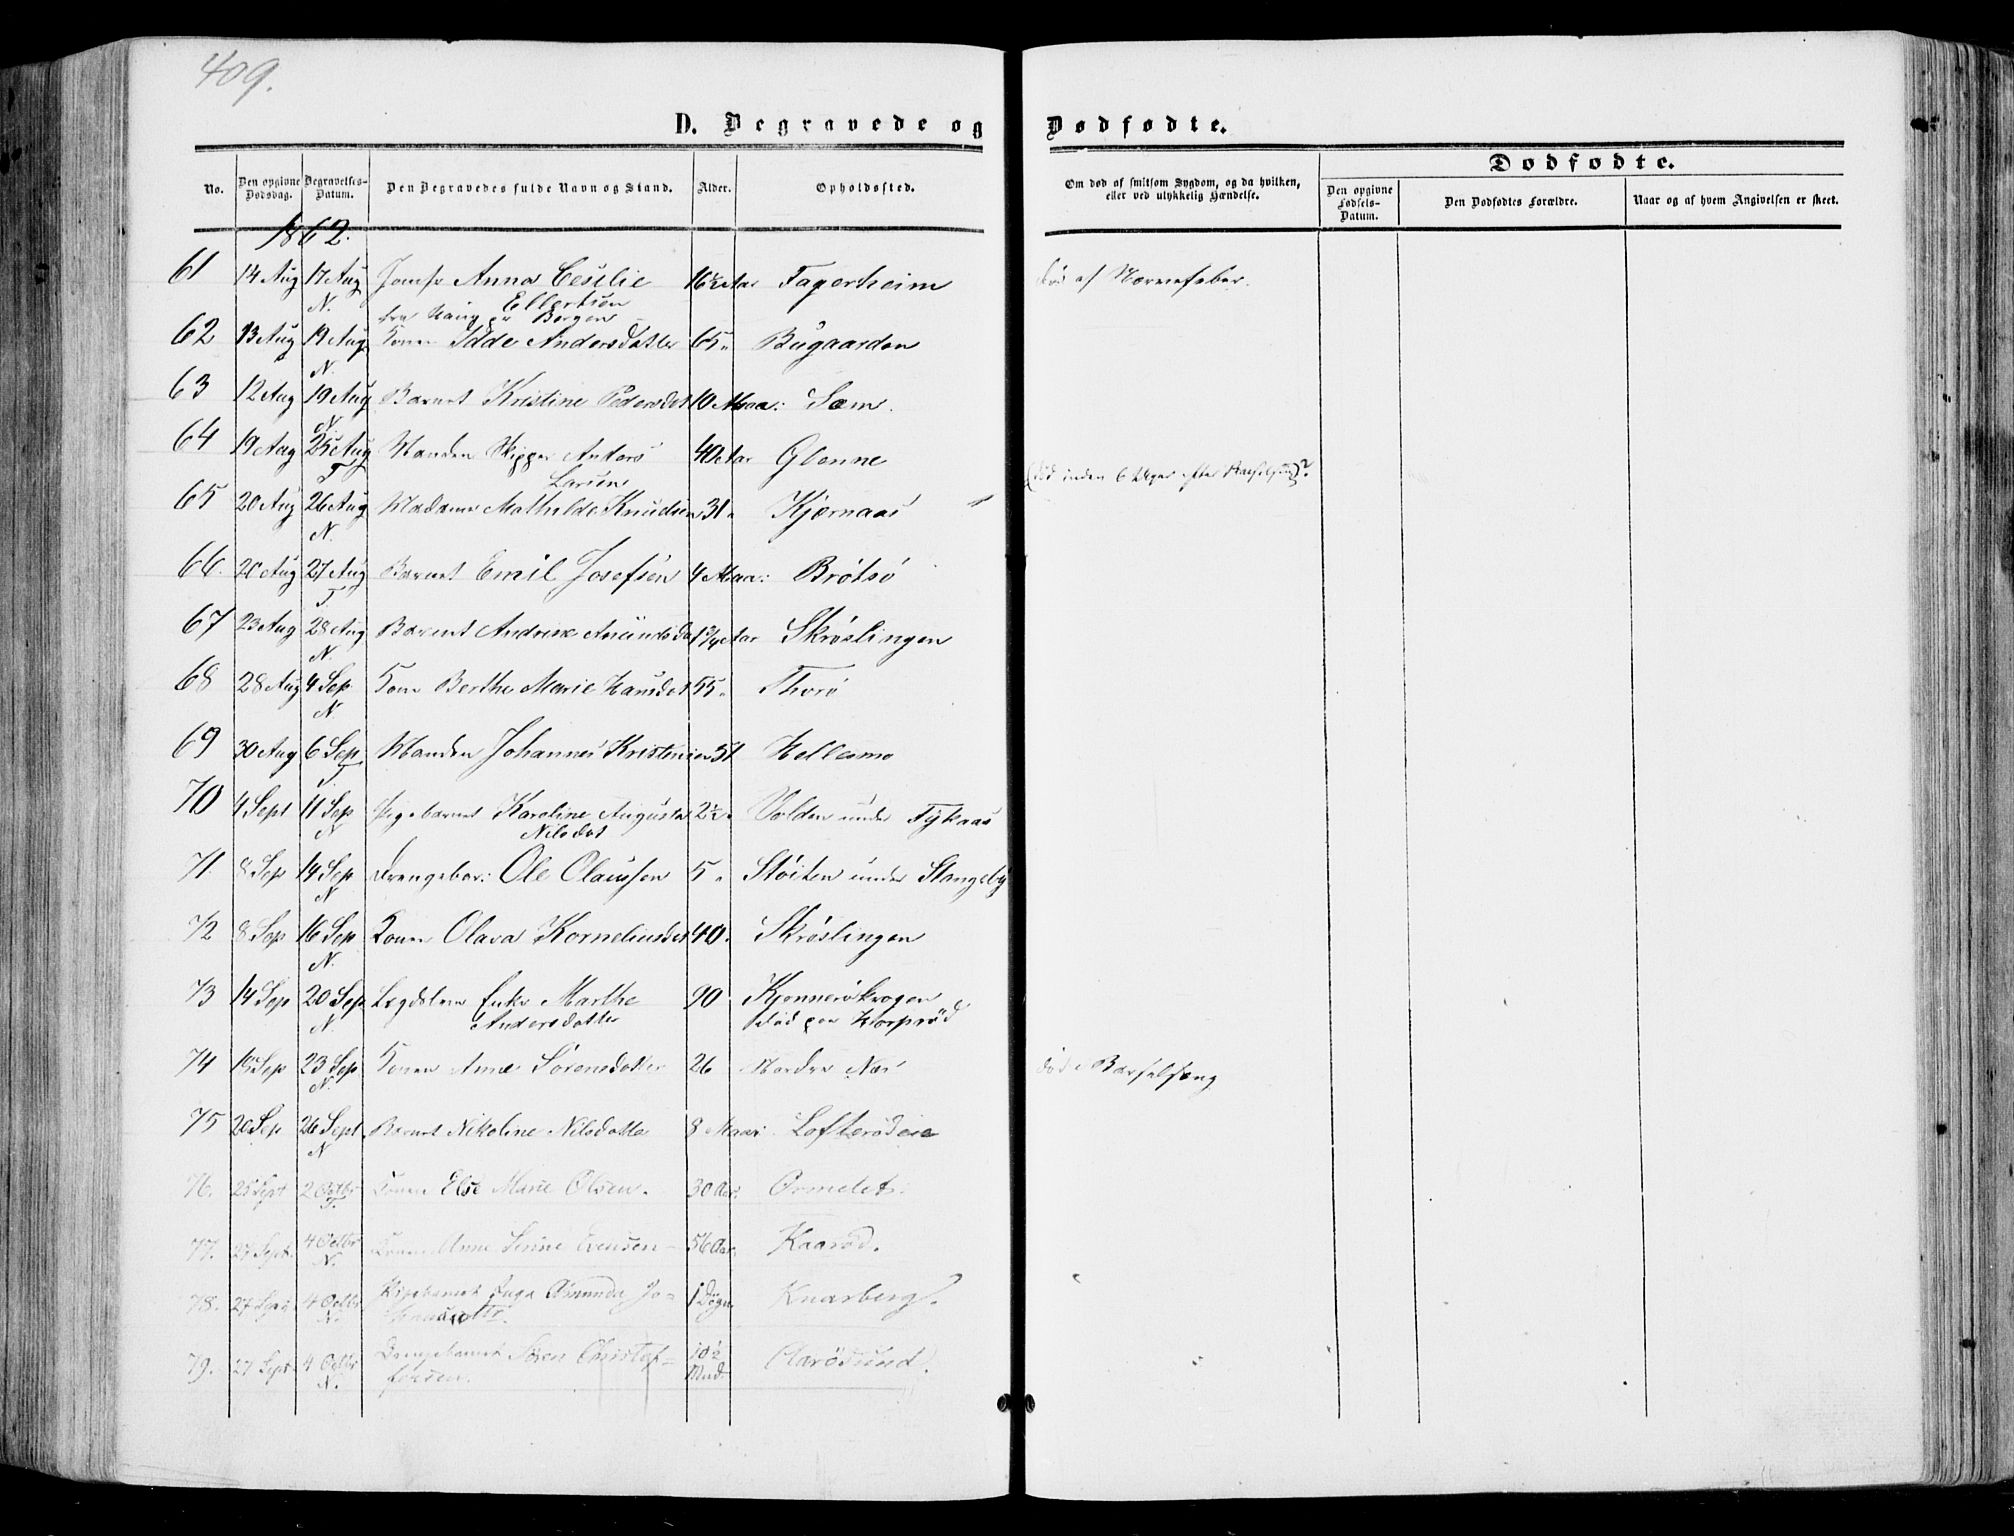 409.
D. Begravede og Dødfødte.
No. Den opgivne Dødsdag. Begravelses-Datum. Den Begravedes fulde Navn og Stand. Alder. Opholdssted. Om død af smitsom Sygdom, og da hvilken, eller ved ulykkelig Hændelse. Dødfødte. Den opgivne Fødsels-Datum. Den Dødfødtes Forældre. Naar og af hvem Angivelsen er skeet.
1862.
61 14 Aug 17 Aug N. Jomfr Anna Cecilie Ellertsen 16½ Aar Fagerheim død af Nervefeber.
fra Bergen
62 13 Aug 19 Aug N. Konen Idde Andersdatter 65 " Bugaarden
63 12 Aug 19 Aug N Barnet Kristine Pedersdat 10 Maa: Sem.
64 19 Aug 25 Aug T Manden Skipper Anders Larsen 40 Aar Glenne
65 20 Aug 26 Aug N. Madame Mathilde Knudsen 31 " Kjærnaas " (død inden 6 Uger efter Barselseng)?
66. 20 Aug 27 Aug T Barnet Emil Josefsen 4 Maa: Brøtsø
67 23 Aug 28 Aug N. Barnet Andrine Amundsda 1¾ Aar Skrøslingen
68 28 Aug 4 Sep N. Kone Berthe Marie Hansdat 55 " Thorø
69 30 Aug 6 Sep T Manden Johannes Kristensen 51 Hellemo
70 4 Sept 11 Sep N Pigebarnet Karoline Augusta Nilsdat 2½ " Volden under Fykaas
71. 8 Sep 14 Sep N Drengebar: Ole Olaussen 5 " Støiten under Stangeby
72 8 Sep 16 Sep N. Konen Olava Korneliusdat 40. Skrøslingen
73 14 Sep 20 Sep N. Lægdslem Enke Marthe Andersdatter 90 Kjønnerøkrogen
død paa Horperød
74 18 Sep 23 Sep N. Konen Anne Sørensdatter 26 Nordre Næs død i Barselseng
75 20 Sep 26 Sept N Barnet Nikoline Nilsdatte 8 Maa: Lofterødeie
76. 25 Sept 2 Octbr T. Konen Else Marie Olsen. 30 Aar. Ormelet.
77. 27 Sept. 4 Octbr N. Konen Anne Serine Evensen 56 Aar. Kaarød.
78. 27 Sept 4 Octbr N. Pigebarnet Inga Amunda Jo=
hansdttr. 1 Døgn Knarberg.
79. 27 Sept 4 Octbr N. Drengebarnet Søren Christof=
fersen. 10½ Mnd. Aarøsund.